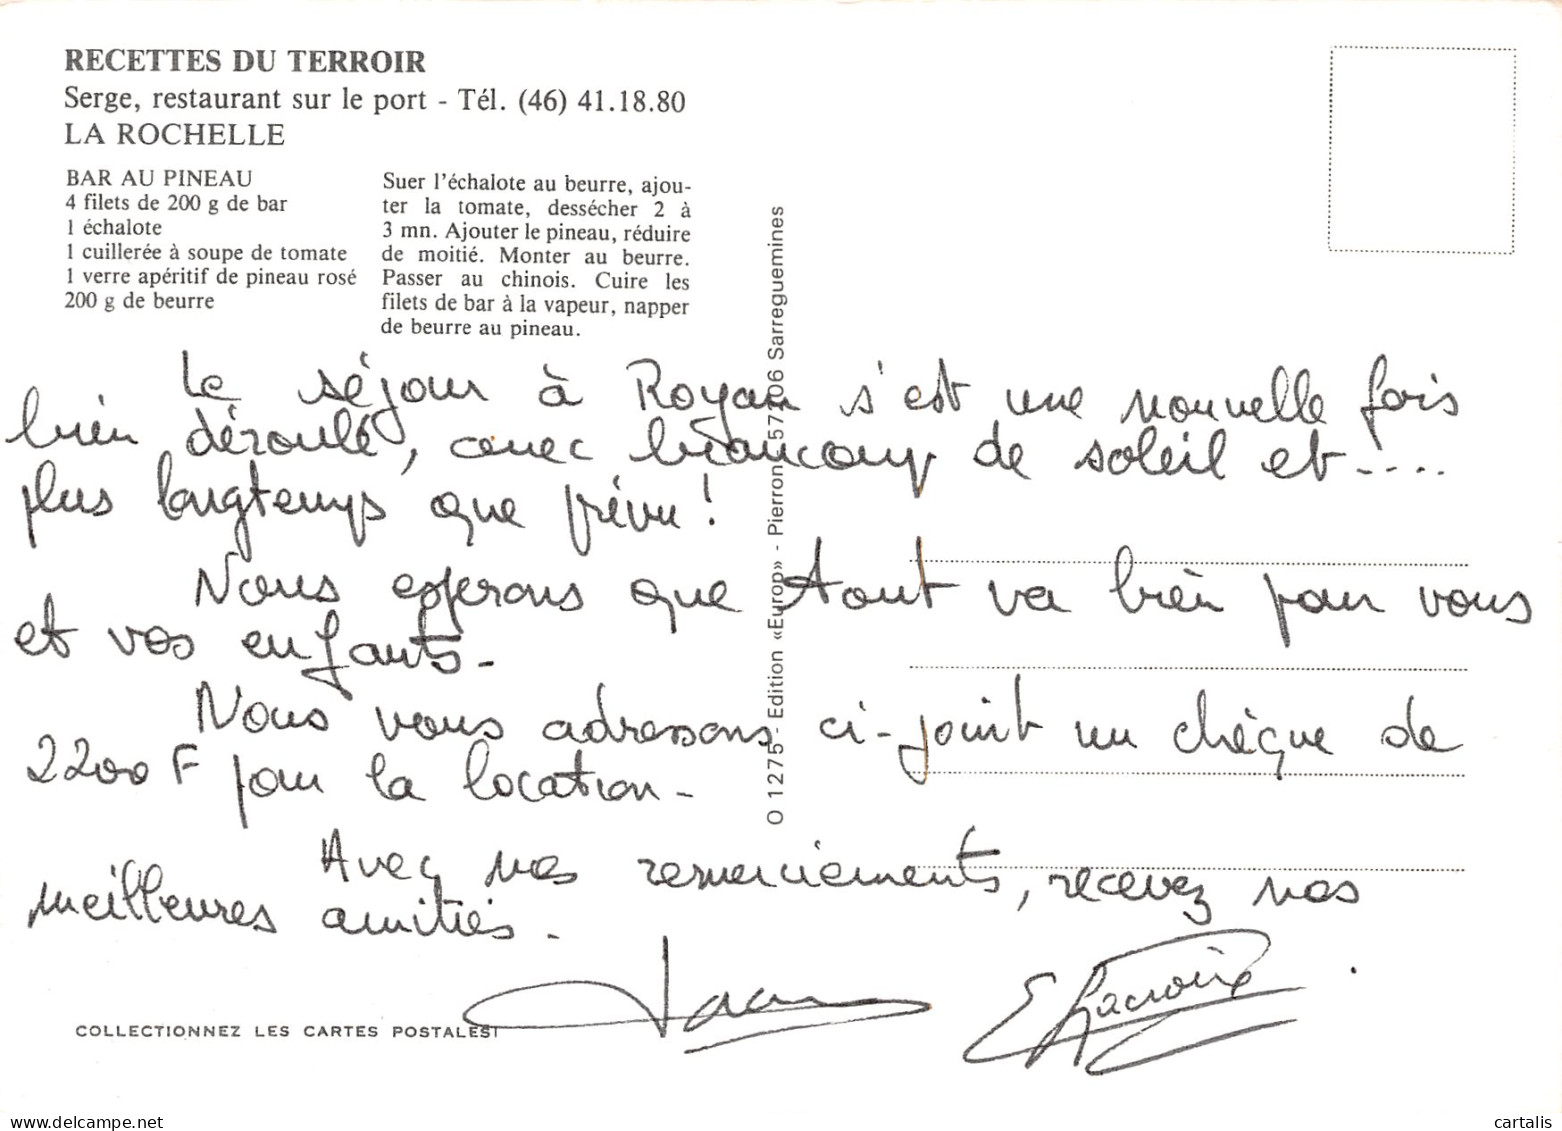 RECETTES DU TERROIR
Serge, restaurant sur le port - Tél. (46) 41.18.80
LA ROCHELLE
BAR AU PINEAU
4 filets de 200 g de bar
1 échalote
1 cuillerée à soupe de tomate
1 verre apéritif de pineau rosé
200 g de beurre
Suer l'échalote au beurre, ajou-
ter la tomate, dessécher 2 à
3 mn. Ajouter le pineau, réduire
de moitié. Monter au beurre.
Passer au chinois. Cuire les
filets de bar à la vapeur, napper
de beurre au pineau.
O 1275 - Edition «Europ» - Pierron 57206 Sarreguemines
Le séjour à Royan s'est une nouvelle fois
bien déroulé, avec beaucoup de soleil et ....
plus longtemps que prévu !
Nous espérons que tout va bien pour vous
et vos enfants -
Nous vous adressons ci-joint un chèque de
2200 F pour la location -
Avec nos remerciements, recevez nos
meilleures amitiés .
ELacroix
COLLECTIONNEZ LES CARTES POSTALES!
delcampe.net
cartalis